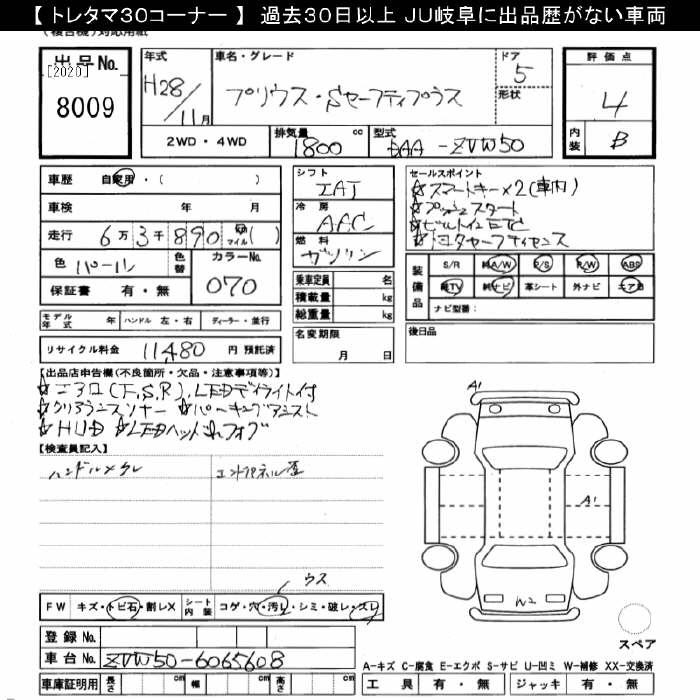 【 トレタマ30コーナー 】 過去30日以上 JU岐阜に出品歴がない車両
出品No.
[2020]
8009
年式
H28/11月
車名・グレード
プリウス・Sセーフティプラス
ドア
5
形状
評価点
4
内装
B
2WD・4WD
排気量
1800 cc
型式
DAA-ZVW50
車歴 自家用・( )
車検 年 月
走行 6万3千890 km マイル( )
色 パール
色替
カラーNo.
070
保証書 有・無
シフト
IAT
冷房
AAC
燃料
ガソリン
乗車定員 名
積載量 kg
総重量 kg
セールスポイント
☆スマートキー×2(車内)
☆プッシュスタート
☆ビルトインETC
☆トヨタセーフティセンス
装備品
S/R 純A/W P/S P/W ABS
純TV 純ナビ 革シート 外ナビ エアB
ナビ型番:
モデル年式 年 ハンドル 左・右 ディーラー・並行
リサイクル料金 11,480 円 預託済
名変期限
月 日
後日品
【出品店申告欄(不良箇所・欠品・注意事項等)】
☆エアロ(F.S.R).LEDデイライト付
☆クリアランスソナー ☆パーキングアシスト
☆HUD ☆LEDヘッドれフォグ
【検査員記入】
ハンドルスレ
エンドパネル歪
ウス
FW キズ・トビ石・割レX
シート内装 コゲ・穴・汚レ・シミ・破レ・スレ
登録No.
車台No. ZVW50-6065608
車庫証明用 長さ cm 幅 cm 高さ cm
A1
A1
W2
スペア
A-キズ C-腐食 E-エクボ S-サビ U-凹ミ W-補修 XX-交換済
工具 有・無 ジャッキ 有・無